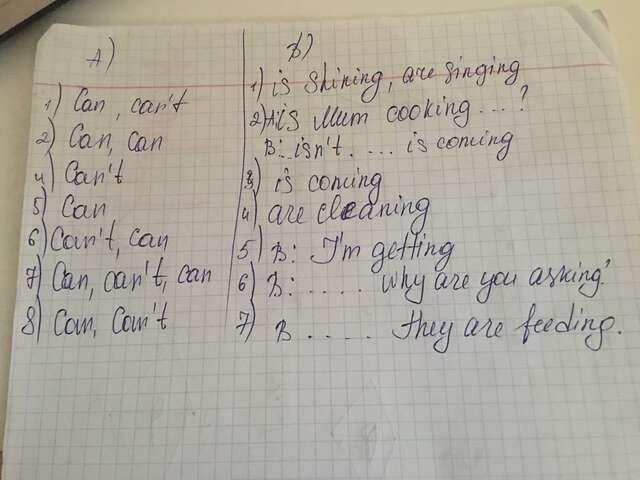 A)
1) Can, can't
2) Can, can
4) Can't
5) Can
6) Can't, can
7) Can, can't, can
8) Can, Can't
B)
1) is shining, are singing
2) A: is Mum cooking ... ?
B: .. isn't. .... is coming
3) is coming
4) are cleaning
5) B: I'm getting
6) B: ..... why are you asking?
7) B ..... they are feeding.